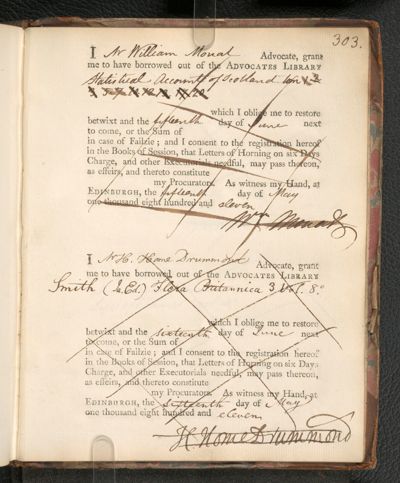 303.
I Mr William Monat Advocate, grant
me to have borrowed out of the ADVOCATES LIBRARY
Statistical Account of Scotland
which I oblige me to restore
betwixt and the fifteenth day of June next
to come, or the Sum of
in case of Failzie; and I consent to the registration hereof
in the Books of Session, that Letters of Horning on six Days
Charge, and other Executorials needful, may pass thereon,
as effeirs, and thereto constitute
my Procurators. As witness my Hand, at
EDINBURGH, the fifteenth day of May
one thousand eight hundred and eleven
Wm Monat
I Mr H. Home Drummond Advocate, grant
me to have borrowed out of the ADVOCATES LIBRARY
Smith (Ja. Ed.) Flora Britannica 3 Vol. 8.o
which I oblige me to restore
betwixt and the sixteenth day of June next
to come, or the Sum of
in case of Failzie; and I consent to the registration hereof
in the Books of Session, that Letters of Horning on six Days
Charge, and other Executorials needful, may pass thereon,
as effeirs, and thereto constitute
my Procurators. As witness my Hand, at
EDINBURGH, the sixteenth day of May
one thousand eight hundred and eleven.
H. Home Drummond